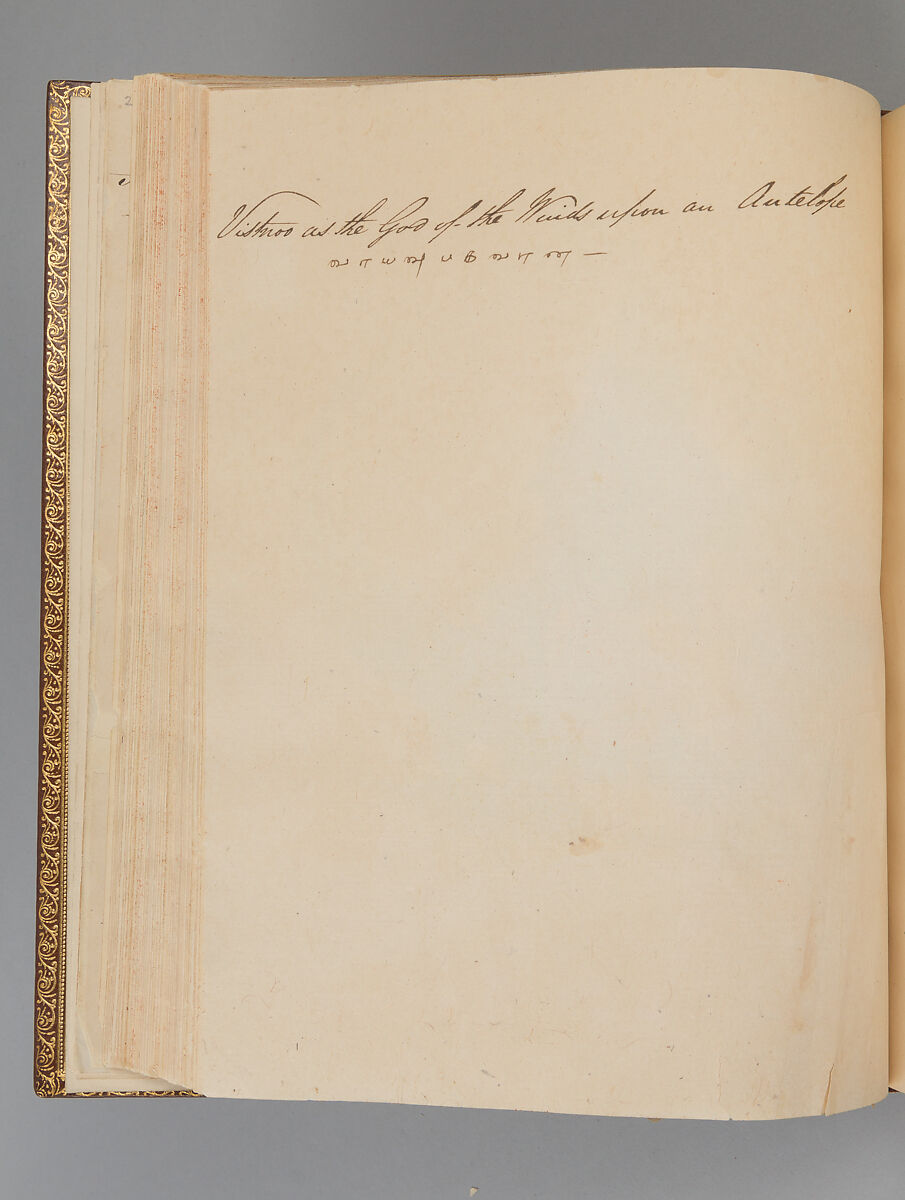 Vistnoo as the God of the Winds upon an Antelope
வாயவு பகவான —
2